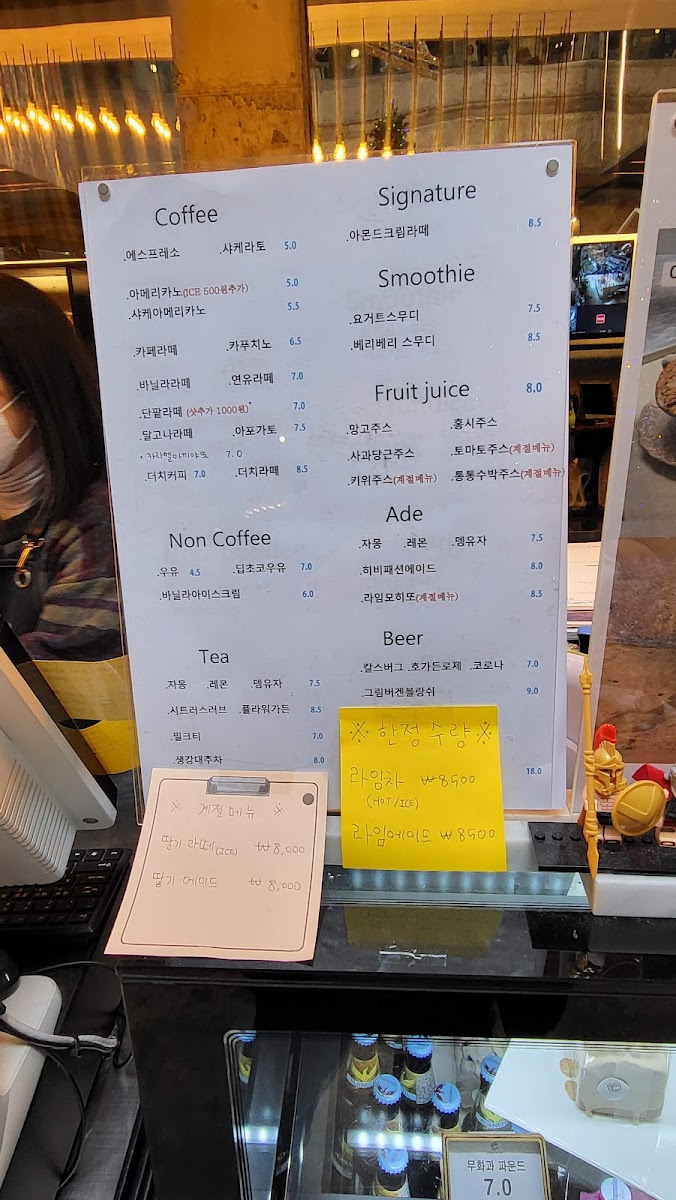 Coffee
.에스프레소 .샤케라토 5.0
.아메리카노(ICE 500원추가) 5.0
.샤케아메리카노 5.5
.카페라떼 .카푸치노 6.5
.바닐라라떼 .연유라떼 7.0
.단팥라떼 (샷추가 1000원)* 7.0
.달고나라떼 .아포가토 7.5
.카라멜마끼야또 7.0
.더치커피 7.0 .더치라떼 8.5
Non Coffee
.우유 4.5 .딥초코우유 7.0
.바닐라아이스크림 6.0
Tea
.자몽 .레몬 .뎅유자 7.5
.시트러스러브 .플라워가든 8.5
.밀크티 7.0
.생강대추차 8.0
Signature
.아몬드크림라떼 8.5
Smoothie
.요거트스무디 7.5
.베리베리 스무디 8.5
Fruit juice 8.0
.망고주스 .홍시주스
.사과당근주스 .토마토주스(계절메뉴)
.키위주스(계절메뉴) .통통수박주스(계절메뉴)
Ade
.자몽 .레몬 .뎅유자 7.5
.히비패션에이드 8.0
.라임모히또(계절메뉴) 8.5
Beer
.칼스버그 .호가든로제 .코로나 7.0
.그림버겐블랑쉬 9.0
18.0
※ 한정수량 ※
라임차 ₩8500
(HOT/ICE)
라임에이드 ₩8500
※ 계절메뉴 ※
딸기 라떼(ICE) ₩8,000
딸기 에이드 ₩8,000
무화과 파운드
7.0